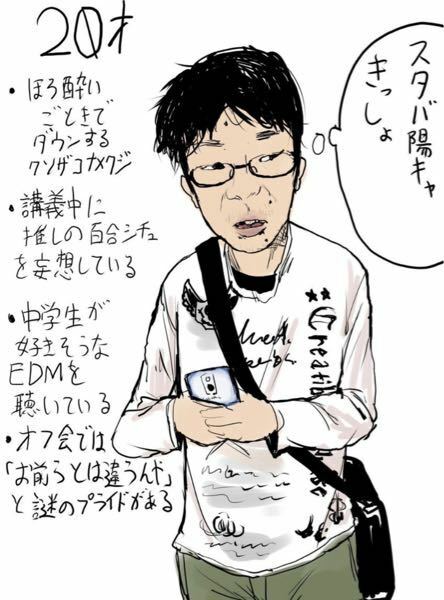 20才
・ほろ酔い
ごときで
ダウンする
クソザコナメクジ
・講義中に
推しの百合シチュ
を妄想している
・中学生が
好きそうな
EDMを
聴いている
・オフ会では
「お前らとは違うんだ」
と謎のプライドがある
スタバ陽キャ
きっしょ